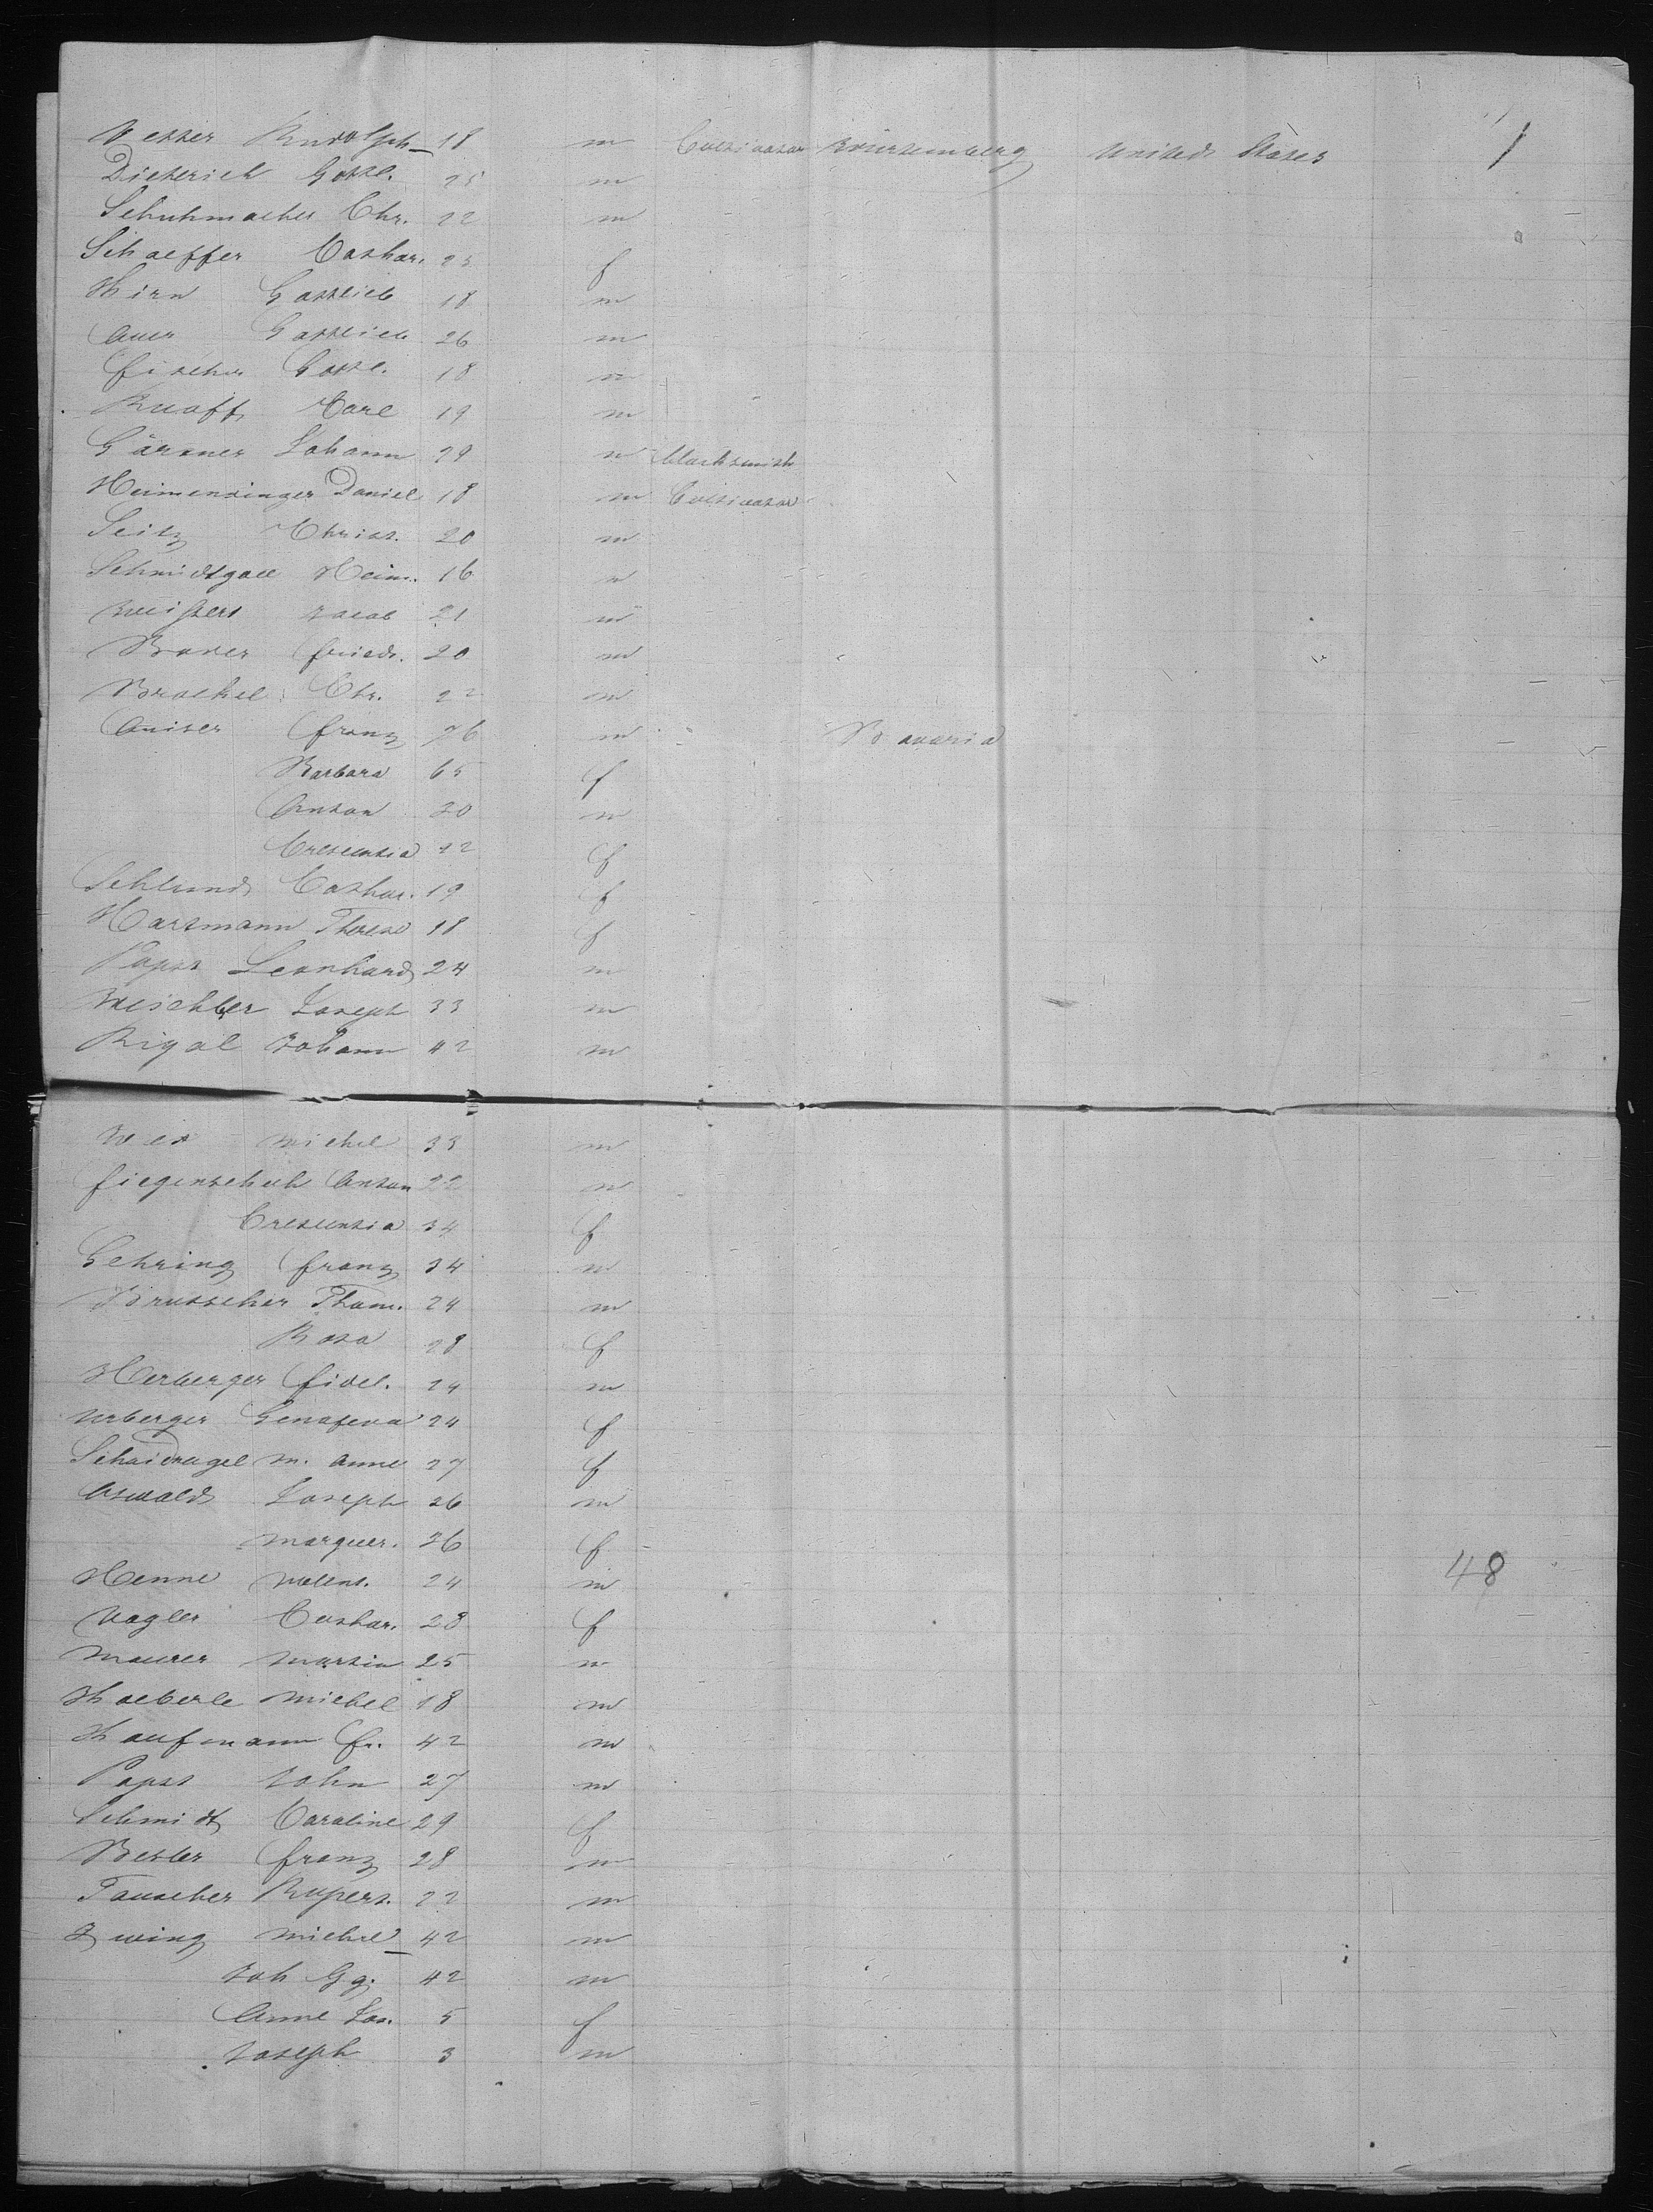 Vetter Rudolph 18 m Cultivator Würtemberg United States 1
Dieterich Gottl. 25 m
Schuhmacher Chr. 22 m
Schaeffer Cathar. 23 f
Kirn Gottlieb 18 m
Auer Gottlieb 26 m
Fischer Gottl. 18 m
Ruoff Carl 19 m
Gärtner Johann 29 m blacksmith
Heimendinger Daniel 18 m Cultivator
Seitz Christ. 20 m
Schmidtgall Heinr. 16 m
Weissert Jacob 21 m
Bader Friedr. 20 m
Braekel Chr. 22 m
Aniser Franz 76 m Bavaria
Barbara 65 f
Anton 30 m
Crescentia 12 f
Schlund Cathar. 19 f
Hartmann Therese 18 f
Papst Leonhard 24 m
Weichler Joseph 33 m
Rigal Johann 42 m
Michel 33 m
Fiegenschuh Anton 22 m
Crescentia 34 f
Gehring Franz 34 m
Brutscher Thom. 24 m
Rosa 28 f
Herberger Fidel. 24 m
Urberger Genofeva 24 f
Schaidnagel M. Anne 27 f
Oswald Joseph 26 m
Marguer. 36 f
Henne 24 m 48
Vogler Cathar. 28 f
Maurer Martin 25 m
Haeberle Michel 18 m
Kaufmann Fr. 42 m
Papst John 27 m
Schmidt Caroline 29 f
Besler Franz 28 m
Tauscher Rupert. 22 m
Zwing Michel 42 m
Joh Gg. 42 m
Anne Jos. 5 f
Joseph 3 m